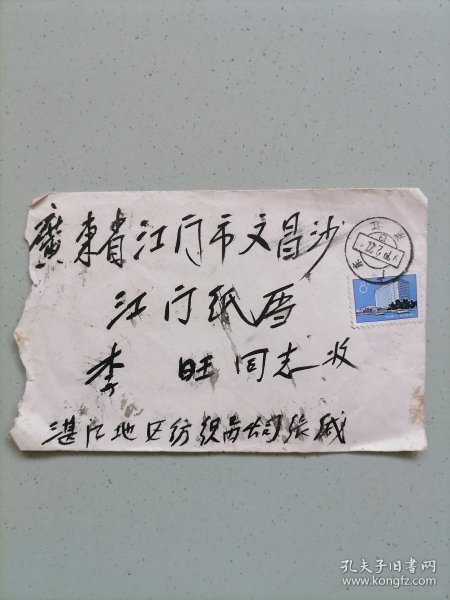 廣東省江门市文昌沙
江门纸厝
李 旺 同志收
湛江地区纺织品公司张
8
孔夫子旧书网
www.kongfz.com